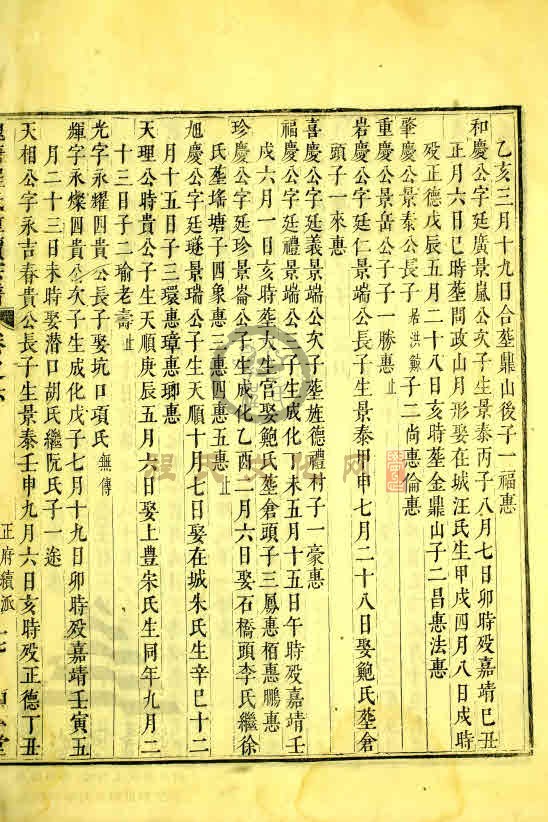 乙亥三月十九日合塟鼎山後子一福惠
和慶公字廷廣景嵐公次子生景泰丙子八月七日卯時殁嘉靖巳丑
正月六日巳時塟問政山月形娶在城汪氏生甲戌四月八日戌時
殁正德戊辰五月二十八日亥時塟金鼎山子二昌惠法惠
肇慶公景泰公長子居洪 子二尚惠倫惠
重慶公景岳公子子一勝惠止
岩慶公字廷仁景端公長子生景泰 甲七月二十八日娶鮑氏塟倉
頭子一來惠
喜慶公字廷義景端公次子塟旌德禮村子一豪惠
福慶公字廷禮景端公三子生成化丁未五月十五日午時殁嘉靖壬
戌六月一日亥時塟大生宫娶鮑氏塟倉頭子三鳳惠栢惠鵬惠
珍慶公字廷珍景崙公子生成化乙酉二月六日娶石橋頭李氏繼徐
氏塟瑤塘子四象惠三惠四惠五惠止
旭慶公字廷璲景瑞公子生天順十月七日娶在城朱氏生辛巳十二
月十五日子三環惠璋惠瑯惠
天理公時貴公子生天順庚辰五月六日娶上豊宋氏生同年九月二
十三日子二瑜老壽止
光字永耀四貴公長子娶坑口項氏無傳
輝字永燦四貴公次子生成化戊子七月十九日卯時殁嘉靖壬寅五
月二十三日未時娶潛口胡氏繼阮氏子一
天相公字永吉春貴公長子生景泰壬申九月六日亥時殁正德丁丑
正府續派
程氏文化网